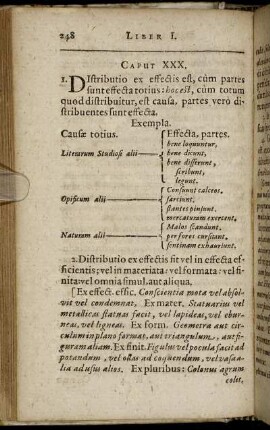 248 LIBER I.
CAPUT XXX.
1. DIstributio ex effectis est, cùm partes
sunt effecta totius: hoc est, cùm totum
quod distribuitur, est causa, partes verò di-
stribuentes sunt effecta.
Exempla.
Causæ totius. Effecta, partes.
bene loquuntur,
Literarum Studiosi alii bene dicunt,
bene disserunt,
scribunt,
legunt.
Consuunt calceos,
Opificum alii sarciunt,
plantes pinsunt,
mercaturam exercent.
Malos scandunt,
Nautarum alii per foros cursitant,
sentinam exhauriunt.
2. Distributio ex effectis fit vel in effecta ef-
ficientis; vel in materiata: vel formata: vel fi-
nita: vel omnia simul, aut aliqua.
Ex effect. effic. Conscientia mota vel absol-
vit vel condemnat. Ex mater. Statuarius vel
metallicas statuas facit, vel lapideas, vel ebur-
neas, vel ligneas. Ex form. Geometra aut cir-
culum in plano format, aut triangulum, aut fi-
guram aliam. Ex finit. Figulus vel pocula facit ad
potandum, vel ollas ad coquendum, vel vasa a-
lia ad usus alios. Ex pluribus: Colonus agrum
colit,